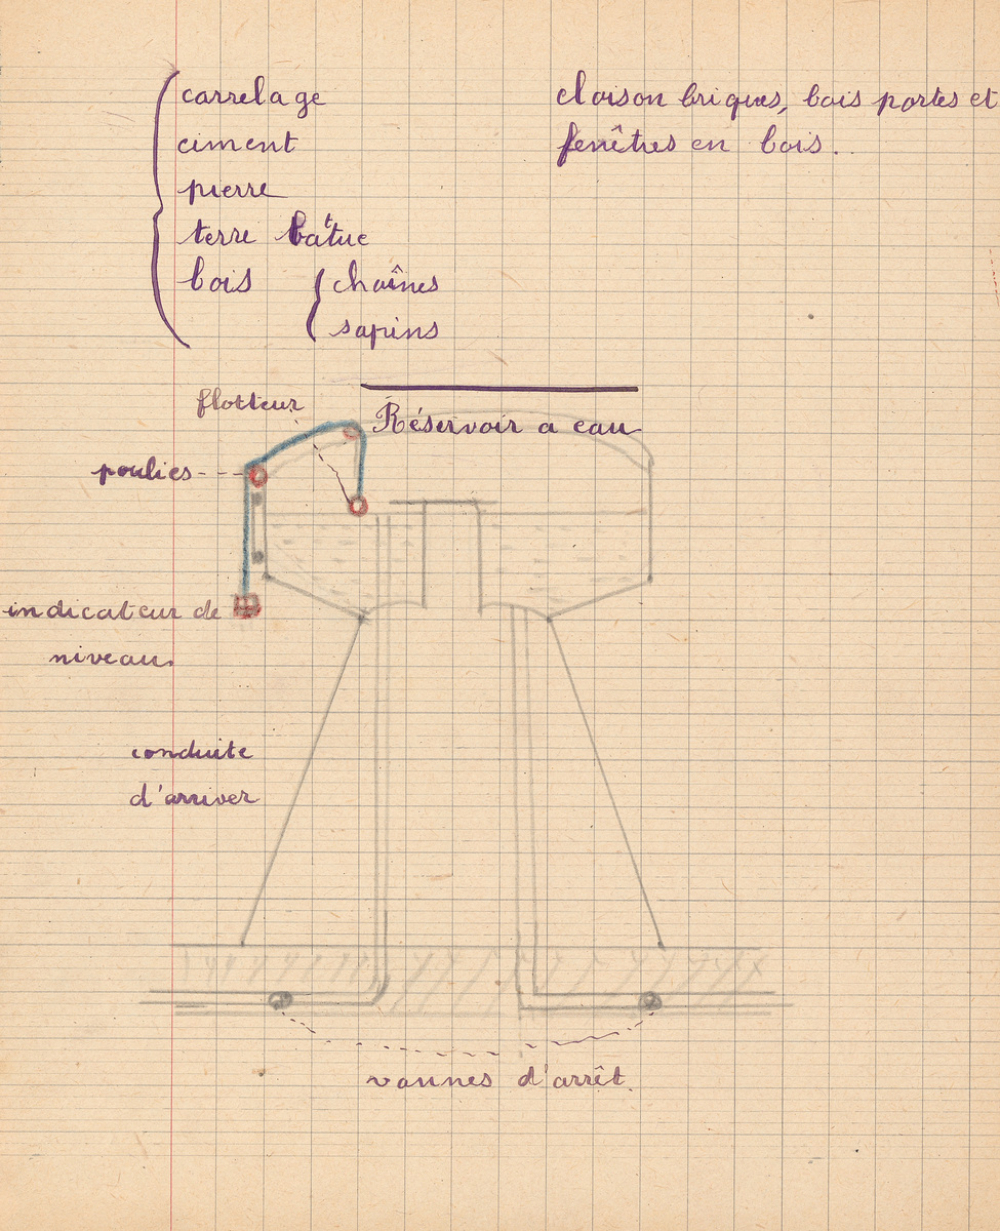 carrelage
ciment
pierre
terre battue
bois
chaînes
sapins
cloison briques, bois portes et
fenêtres en bois.
Réservoir a eau
flotteur
poulies
indicateur de
niveau.
conduite
d'arriver
vannes d'arrêt.